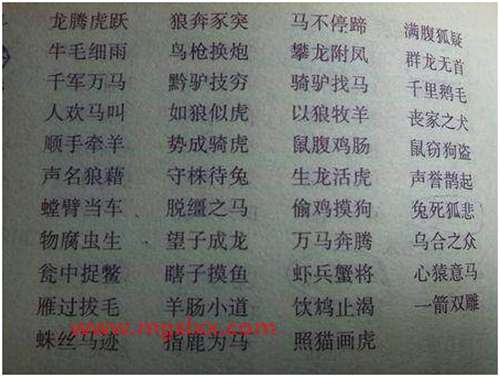 龙腾虎跃 狼奔豕突 马不停蹄 满腹狐疑
牛毛细雨 鸟枪换炮 攀龙附凤 群龙无首
千军万马 黔驴技穷 骑驴找马 千里鹅毛
人欢马叫 如狼似虎 以狼牧羊 丧家之犬
顺手牵羊 势成骑虎 鼠腹鸡肠 鼠窃狗盗
声名狼藉 守株待兔 生龙活虎 声誉鹊起
螳臂当车 脱缰之马 偷鸡摸狗 兔死狐悲
物腐虫生 望子成龙 万马奔腾 乌合之众
瓮中捉鳖 瞎子摸鱼 虾兵蟹将 心猿意马
雁过拔毛 羊肠小道 饮鸩止渴 一箭双雕
www.mgslxx.com
蛛丝马迹 指鹿为马 照猫画虎